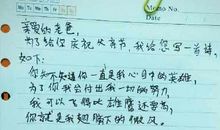 Memo No.
Mo Tu We Th Fr Sa Su
Date
亲爱的老爸,
为了给你庆祝父亲节,我给您写一首诗,
如下:
你知不知道你一直是我心目中的英雄,
为了你我会付出我一切的努力,
我可以飞得比雄鹰还要高,
你就是我翅膀下的微风。